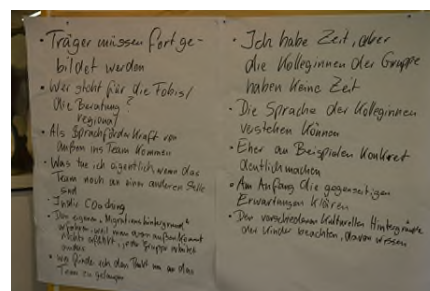 • Träger müssen fortge-
bildet werden
• Wer steht für die Fobis/
die Beratung?
regional
• Als Sprachförderkraft von
außen ins Team kommen
• Was tue ich eigentlich wenn das
Team noch an einer anderen Stelle
sind
• Coaching
• Den eigenen „Migrationshintergrund"
weil man von außen kommt
nichts erfährt, jede Gruppe arbeitet
anders
• Wie finde ich den Punkt um an das
Team zu gelangen
• Ich habe Zeit, aber
die Kolleginnen der Gruppe
haben keine Zeit
• Die Sprache der Kolleginnen
verstehen können
• Eher an Beispielen konkret
deutlich machen
• Am Anfang die gegenseitigen
Erwartungen klären
• Den verschiedenen kulturellen Hintergründe
der Kinder beachten, davon wissen